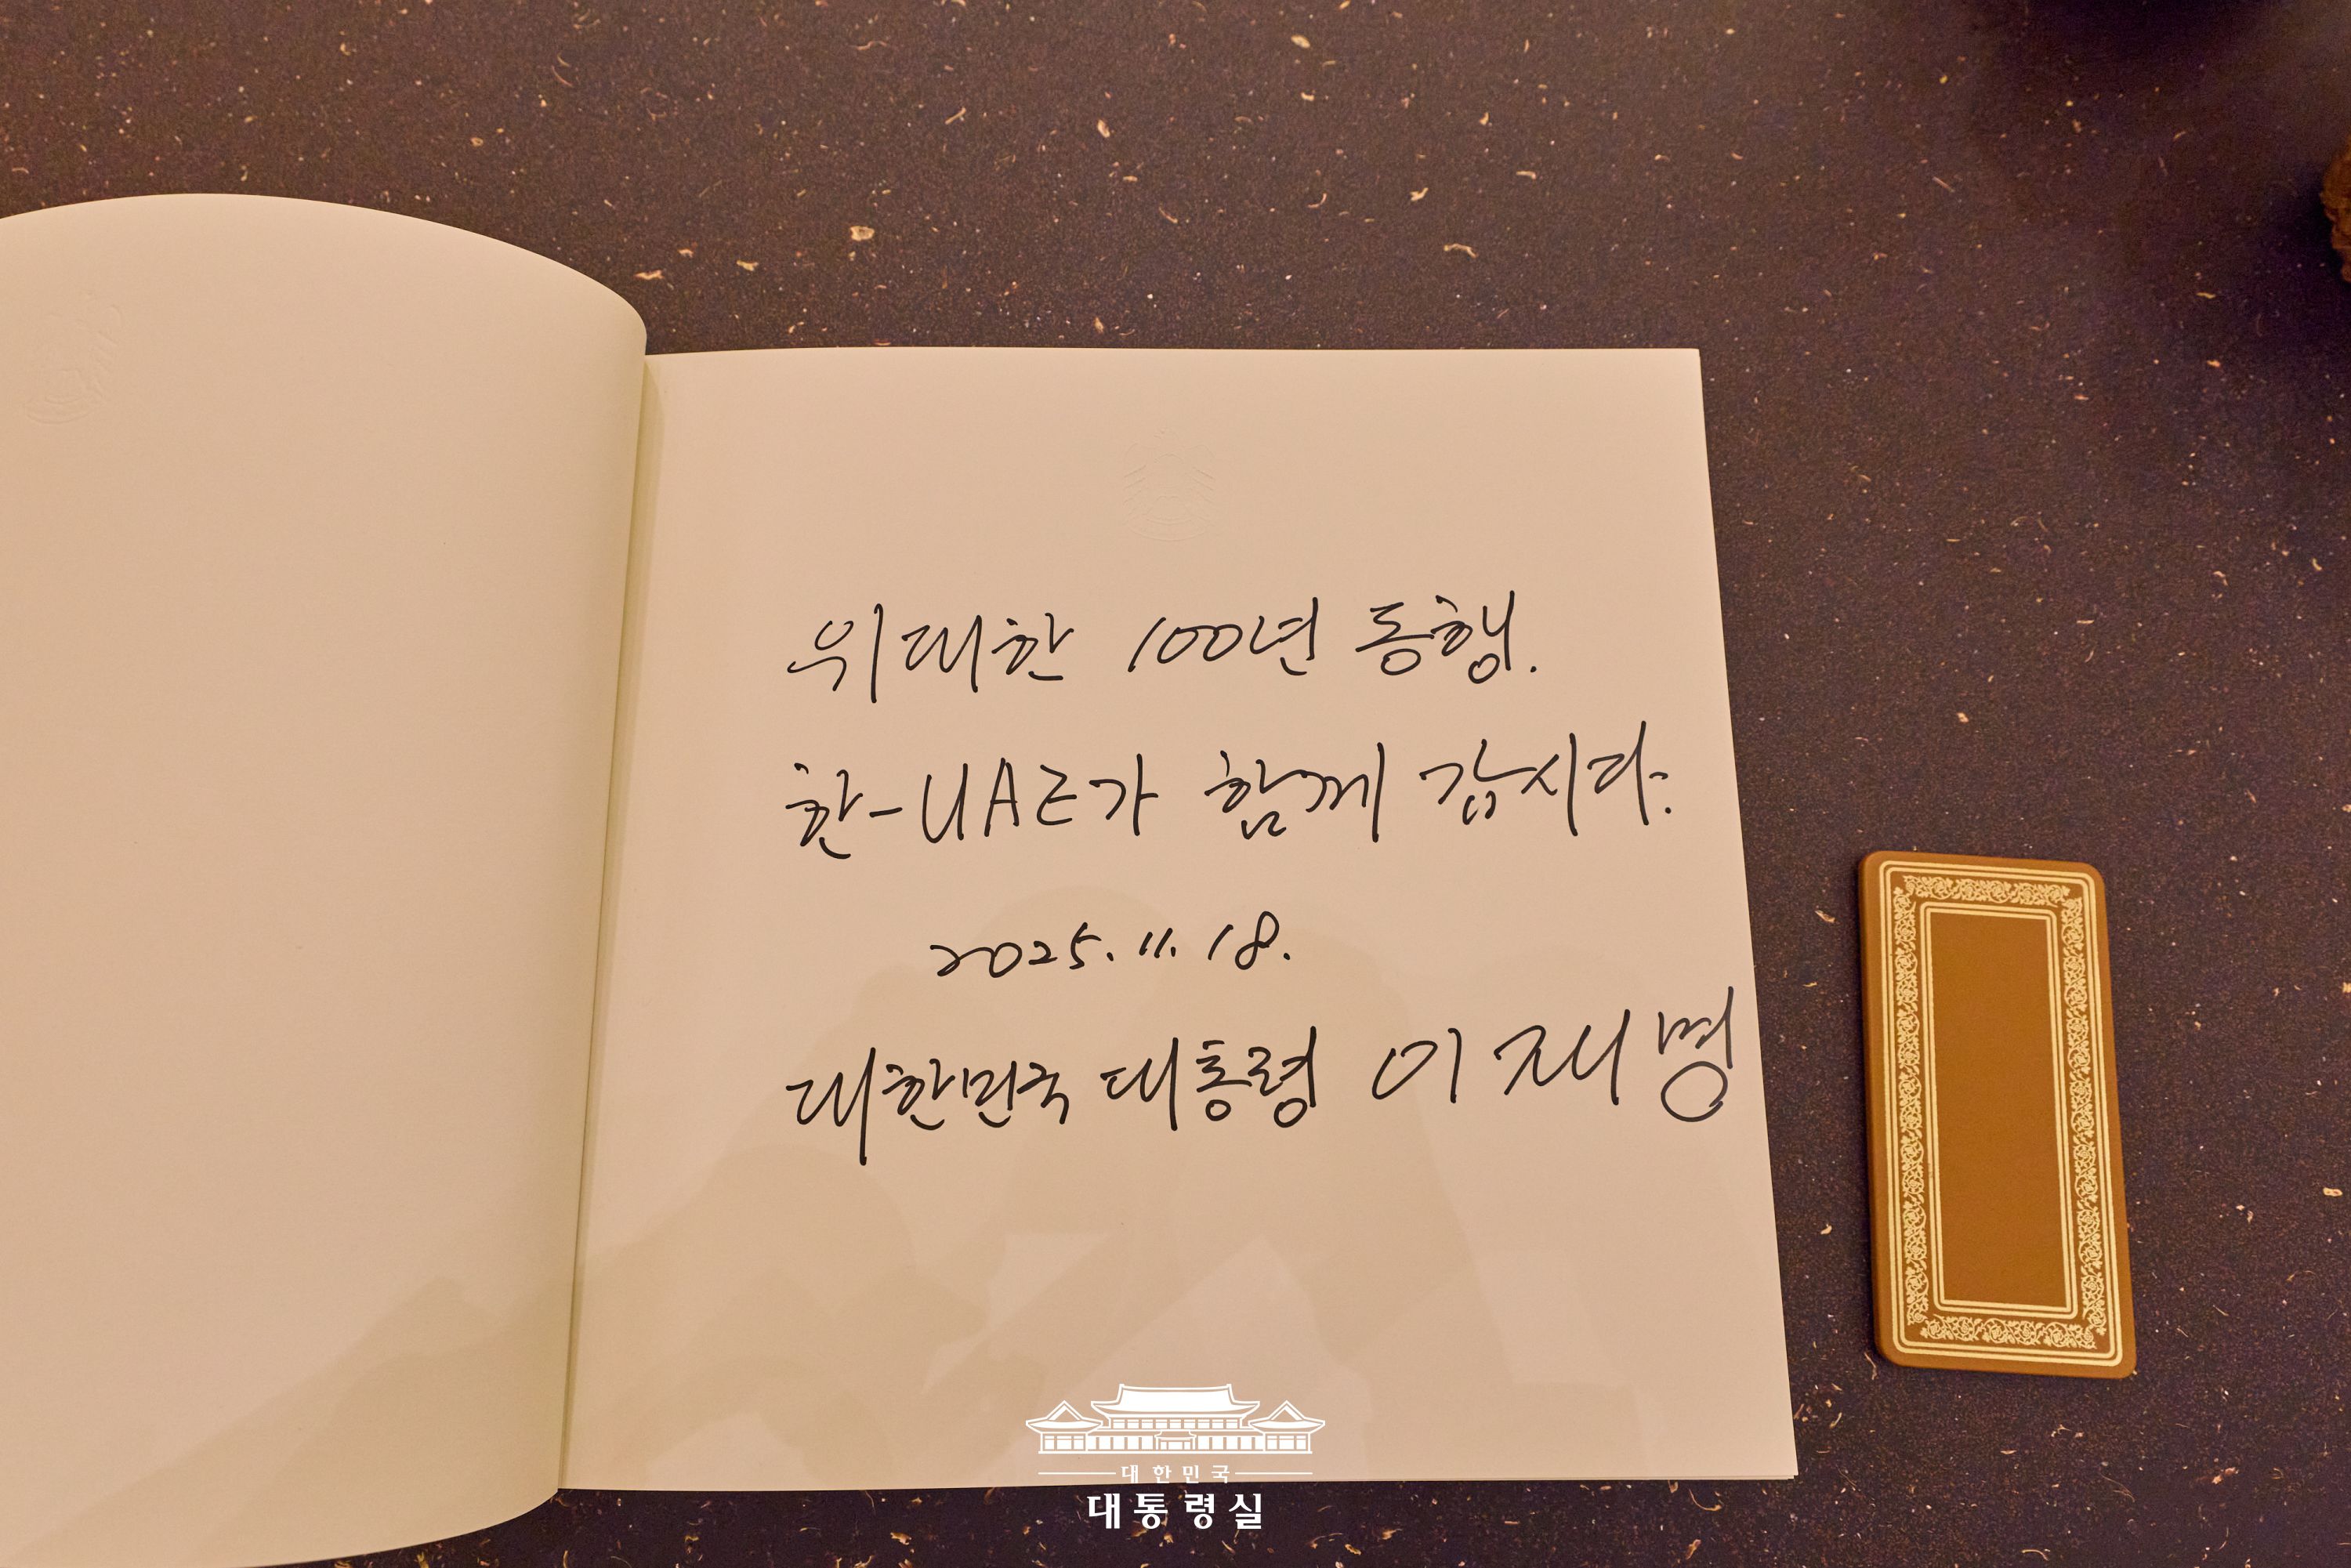 위대한 100년 동행.
한-UAE가 함께 갑시다.
2025. 11. 18.
대한민국 대통령 이재명
대한민국
대통령실